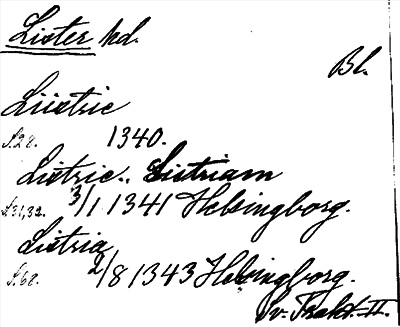 Lister hd.
Bl.
Liistric
S.28. 1340.
Listric.. Listriam
S.31,32. 3/1 1341 Helsingborg.
Listria
S.68. 2/8 1343 Helsingborg.
Sv. Trakt. II.